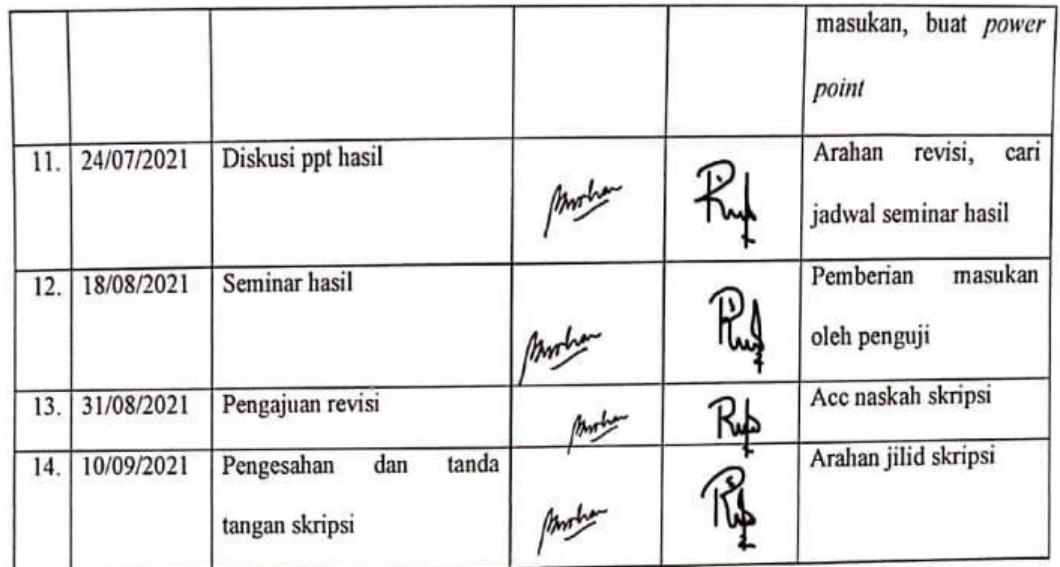 masukan, buat power
point
11. 24/07/2021 Diskusi ppt hasil Arahan revisi, cari
jadwal seminar hasil
12. 18/08/2021 Seminar hasil Pemberian masukan
oleh penguji
13. 31/08/2021 Pengajuan revisi Acc naskah skripsi
14. 10/09/2021 Pengesahan dan tanda Arahan jilid skripsi
tangan skripsi